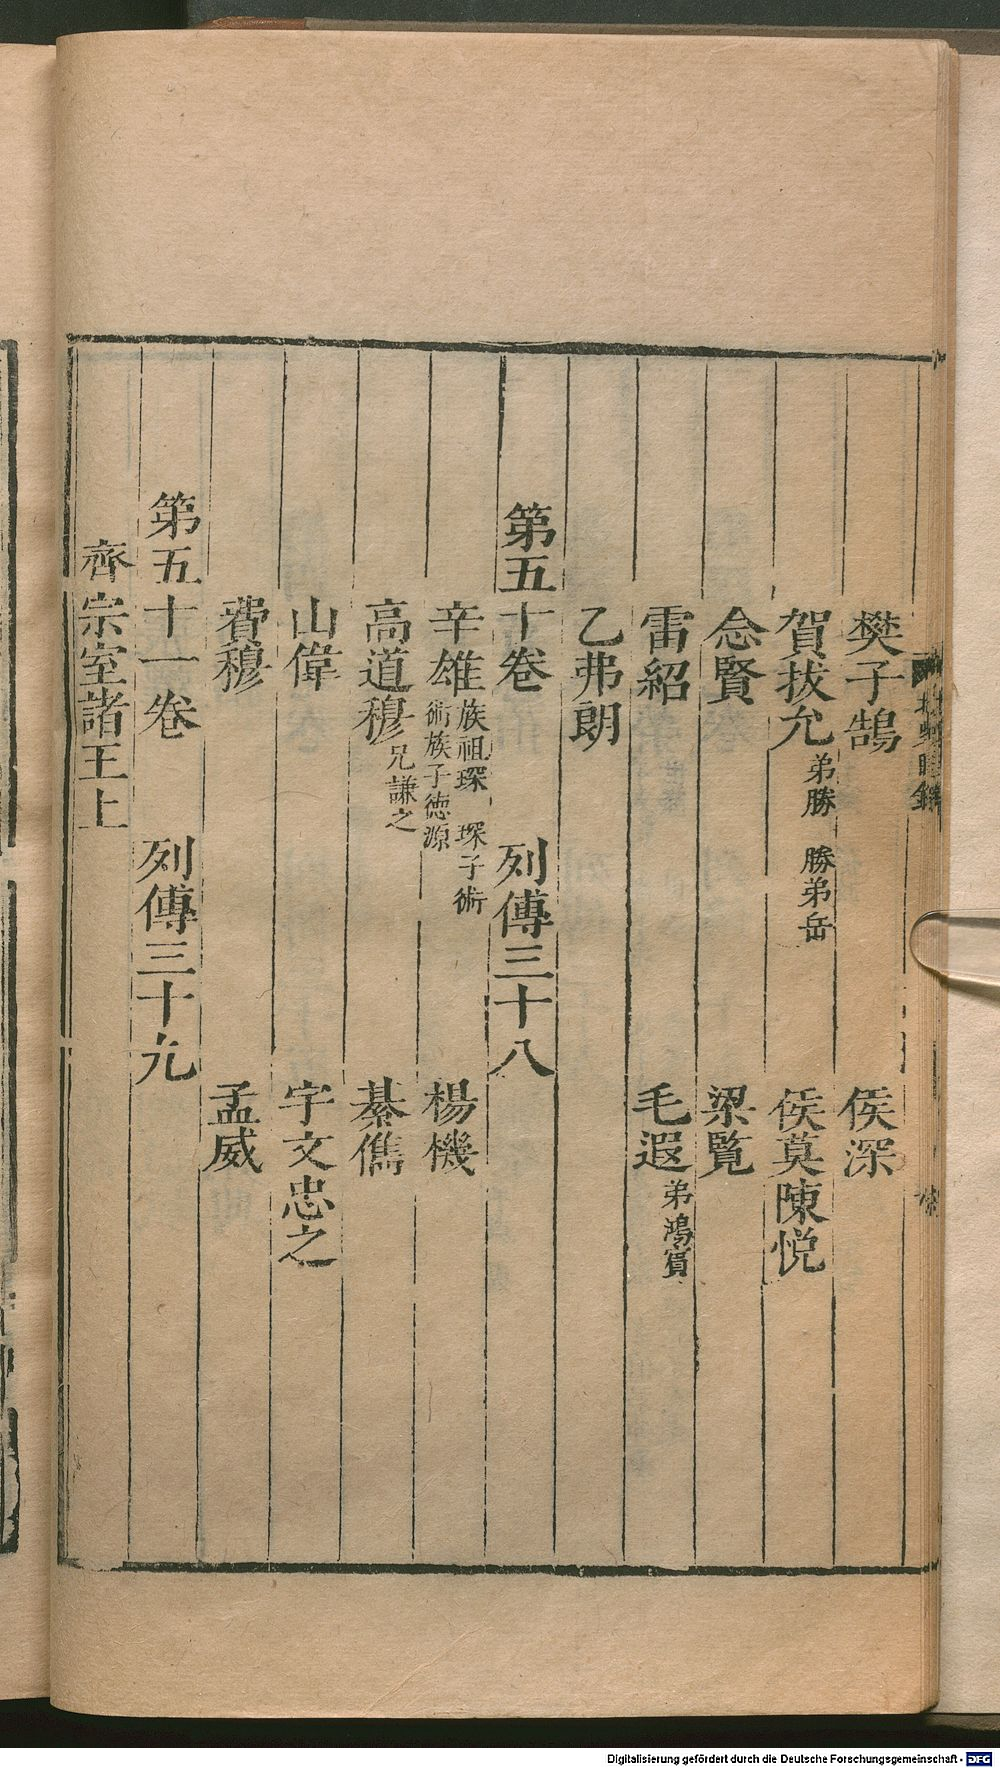 樊子鵠 侯深
賀拔允 弟勝 勝弟岳 侯莫陳悅
念賢 梁覽
雷紹 毛遐 弟鴻賓
乙弗朗
第五十卷 列傳三十八
辛雄 族祖琛 琛子術 術族子德源 楊機
高道穆 兄謙之 綦儁
山偉 宇文忠之
費穆 孟威
第五十一卷 列傳三十九
齊宗室諸王上
Digitalisierung gefördert durch die Deutsche Forschungsgemeinschaft - DFG